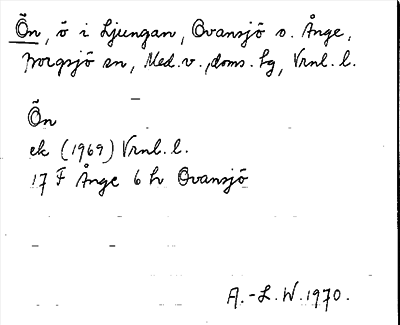 Ön, ö i Ljungan, Ovansjö s. Ånge,
Borgsjö sn, Med.v., doms. hg, Vrnl. l.
Ön
ek (1969) Vrnl. l.
17 F Ånge 6 h Ovansjö
A.-L. W. 1970.